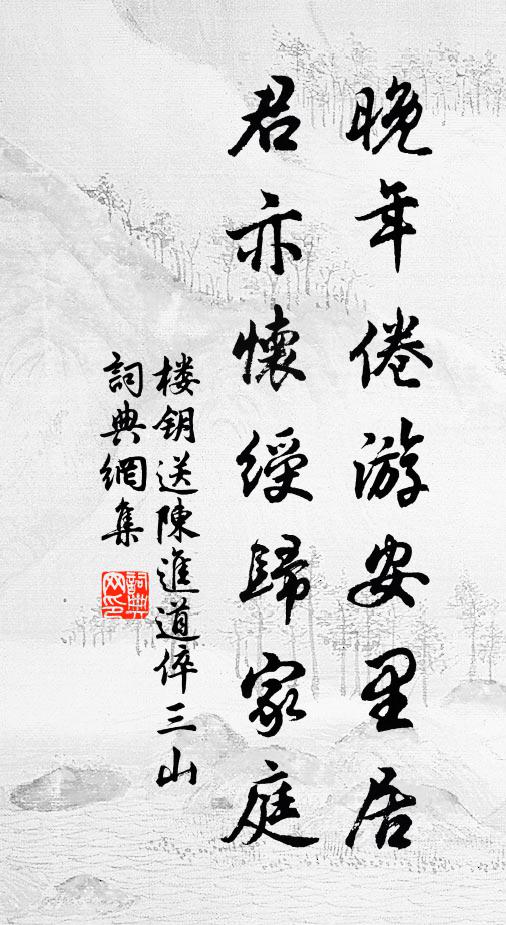 晚年倦游安里居
君亦懷綬歸家庭
楼钥送陳進道倅三山
詞典網集
詞典网印